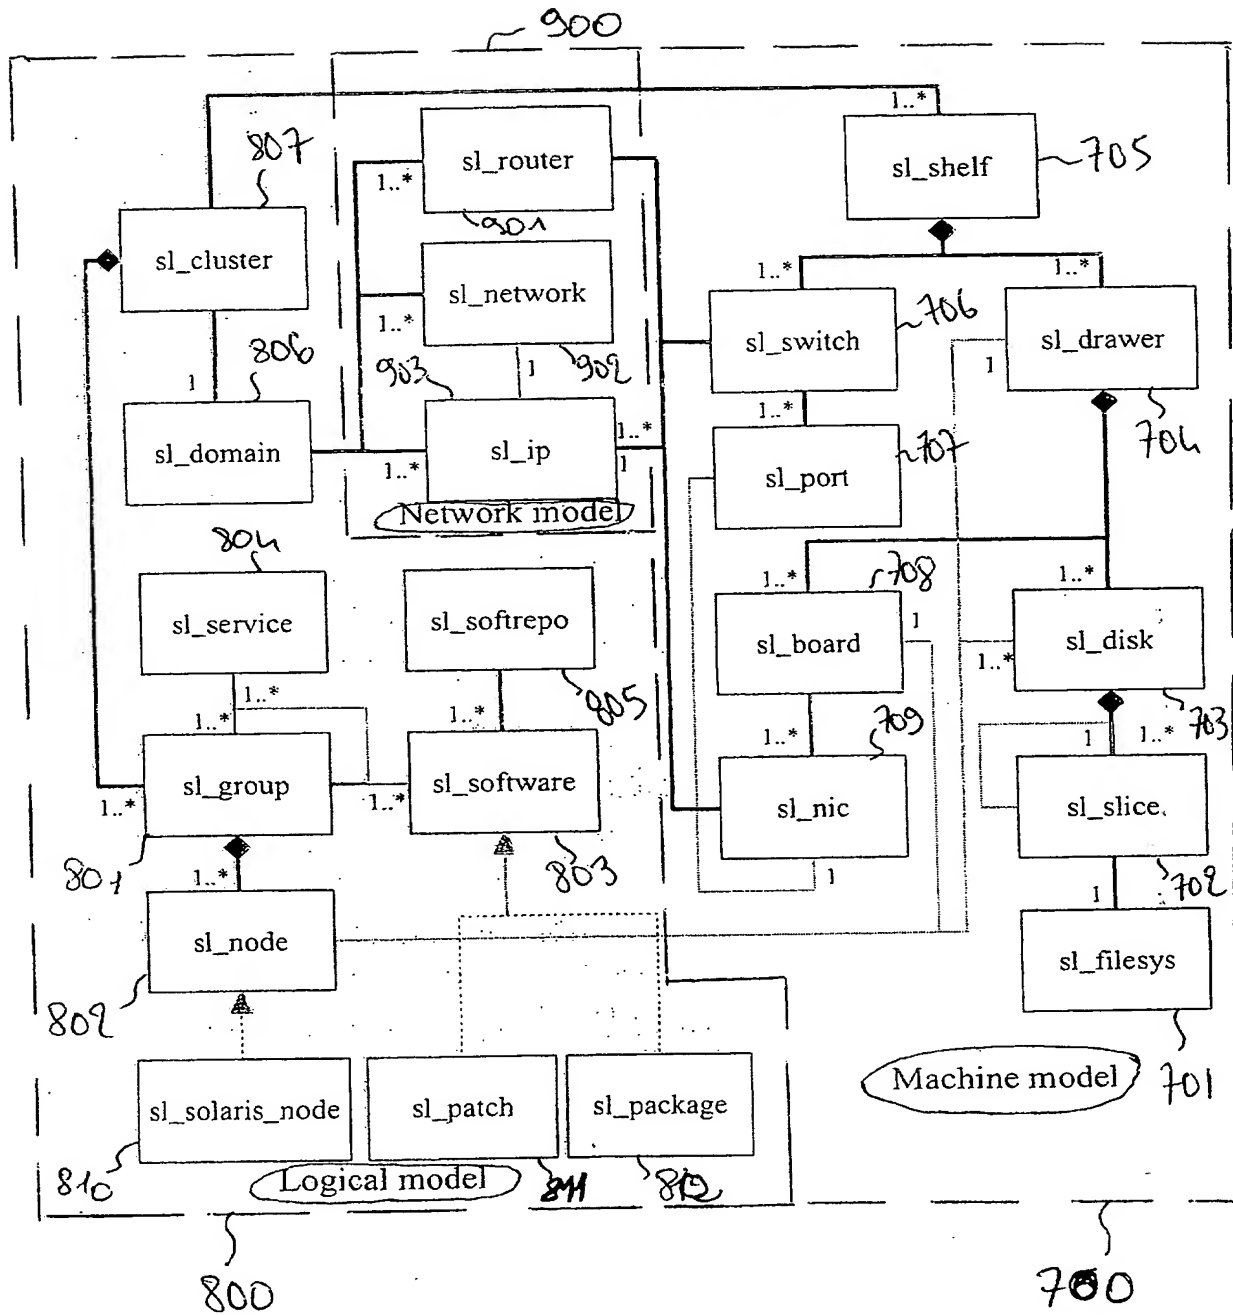 900
1..*
807
sl_router
sl_shelf
705
1..*
901
sl_cluster
sl_network
1..*
1..*
1..*
sl_switch
706
sl_drawer
806
903
1
902
1
1
1..*
704
sl_domain
1..*
sl_ip
1..*
1
sl_port
707
Network model
804
1..*
708
1..*
sl_service
sl_softrepo
sl_board
1
sl_disk
1..*
1..*
805
703
1..*
1..*
1..*
709
1
1..*
sl_group
sl_software
sl_nic
sl_slice
1..*
1..*
801
803
1
702
1..*
1
sl_node
sl_filesys
802
Machine model
701
sl_solaris_node
sl_patch
sl_package
810
Logical model
811
812
800
700